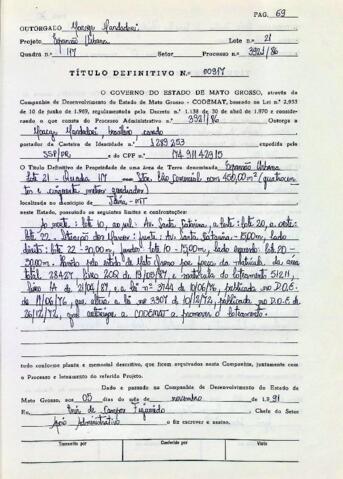 PAG. 69
OUTORGADO Moacyr Mandadori
Projeto Expansão Urbana Lote n.º 21
Quadra n.º 117 Setor Processo n.º 3921/86
TÍTULO DEFINITIVO N.º 00917
O GOVERNO DO ESTADO DE MATO GROSSO, através da
Companhia de Desenvolvimento do Estado de Mato Grosso - CODEMAT, baseado na Lei n.º 2.933
de 10 de junho de 1969, regulamentada pelo Decreto n.º 1.138 de 30 de abril de 1970 e conside-
rando o que consta do Processo Administrativo n.º 3921/86 Outorga a
Moacyr Mandadori, brasileiro, casado
portador da Carteira de Identidade n.º 1289253 expedida pela
SSP/PR e do CPF n.º
O Título Definitivo de Propriedade de uma área de Terra denominada Expansão Urbana
lote 21 - Quadra 117 Comercial com 450,00 m² (quatrocen
tos e cinquenta metros quadrados)
localizada no município de MT
neste Estado, possuindo os seguintes limites e confrontações:
Ao norte: lote 10, ao sul: Av. Santa Catarina, a leste: lote 20, a oeste:
lote 22. frente: Av. Santa Catarina - 15,00m, lado
direito: lote 22 - 30,00m, fundo: lote 10 - 15,00m, lado esquerdo: lote 20 -
30,00m. pelo estado de Mato Grosso por força da matrícula da área
total livro 2CQ de e matrícula do loteamento
livro 1A de e a lei nº 3744 de 10/06/76, publicada no D.O.E.
de que altera a lei nº 3307 de publicada no D.O.E. de
26/12/72, que autoriza a CODEMAT a promover o loteamento.
tudo conforme planta e memorial descritivo, que ficam arquivados nesta Companhia, juntamente com
o Processo e loteamento do referido Projeto.
Dado e passado na Companhia de Desenvolvimento do Estado de
Mato Grosso, aos 05 dias do mês de novembro de 1.991
Eu, de Campos Figueiredo Chefe do Setor
Apoio Administrativo o fiz escrever e assino.
Transcrito por Conferido por Visto